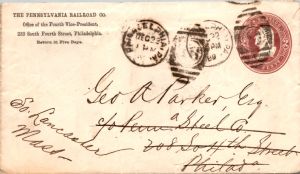 THE PENNSYLVANIA RAILROAD CO.
Office of the Fourth Vice-President,
233 South Fourth Street, Philadelphia.
Return in Five Days.
PHILADELPHIA
DEC
PM
PM
Geo A Parker, Esq
c/o Penn Steel Co
208 So 4th Street
Philada
So. Lancaster
Mass